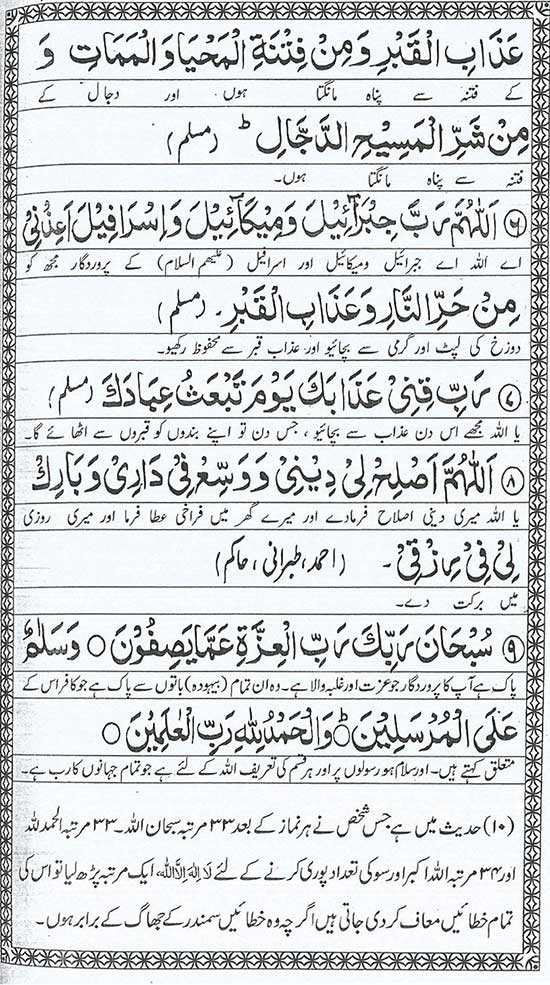 عَذَابِ الْقَبْرِ وَمِنْ فِتْنَةِ الْمَحْيَا وَالْمَمَاتِ وَ
کے فتنہ سے پناہ مانگتا ہوں اور دجال کے
مِنْ شَرِّ الْمَسِيْحِ الدَّجَّالِ ؕ (مسلم)
فتنہ سے پناہ مانگتا ہوں۔
۶ اَللّٰهُمَّ رَبَّ جِبْرَآئِيْلَ وَمِيْكَآئِيْلَ وَاِسْرَافِيْلَ اَعِذْنِيْ
اے اللہ اے جبرائیل ومیکائیل اور اسرافیل (علیھم السلام) کے پروردگار مجھ کو
مِنْ حَرِّ النَّارِ وَعَذَابِ الْقَبْرِ۔ (مسلم)
دوزخ کی لپٹ اور گرمی سے بچائیو اور عذاب قبر سے محفوظ رکھیو۔
۷ رَبِّ قِنِيْ عَذَابَكَ يَوْمَ تَبْعَثُ عِبَادَكَ (مسلم)
یا اللہ مجھے اس دن عذاب سے بچائیو ، جس دن تو اپنے بندوں کو قبروں سے اٹھائے گا۔
۸ اَللّٰهُمَّ اَصْلِحْ لِيْ دِيْنِيْ وَوَسِّعْ فِيْ دَارِيْ وَبَارِكْ
یا اللہ میری دینی اصلاح فرمادے اور میرے گھر میں فراخی عطا فرما اور میری روزی
لِيْ فِيْ رِزْقِيْ۔ (احمد، طبرانی، حاکم)
میں برکت دے۔
۹ سُبْحَانَ رَبِّكَ رَبِّ الْعِزَّةِ عَمَّا يَصِفُوْنَ ○ وَسَلٰمٌ
پاک ہے آپ کا پروردگار جو عزت اور غلبہ والا ہے۔ وہ ان تمام (بیہودہ) باتوں سے پاک ہے جو کافر اس کے
عَلَى الْمُرْسَلِيْنَ ○ؕ وَالْحَمْدُ لِلّٰهِ رَبِّ الْعٰلَمِيْنَ ○
متعلق کہتے ہیں۔ اور سلام ہو رسولوں پر اور ہر قسم کی تعریف اللہ کے لئے ہے جو تمام جہانوں کا رب ہے۔
(۱۰) حدیث میں ہے جس شخص نے ہر نماز کے بعد ۳۳ مرتبہ سبحان اللہ۔ ۳۳ مرتبہ الحمد للہ
اور ۳۴ مرتبہ اللہ اکبر اور سو کی تعداد پوری کرنے کے لئے لَا اِلٰهَ اِلَّا اللّٰهُ ایک مرتبہ پڑھ لیا تو اس کی
تمام خطائیں معاف کردی جاتی ہیں اگرچہ وہ خطائیں سمندر کے جھاگ کے برابر ہوں۔